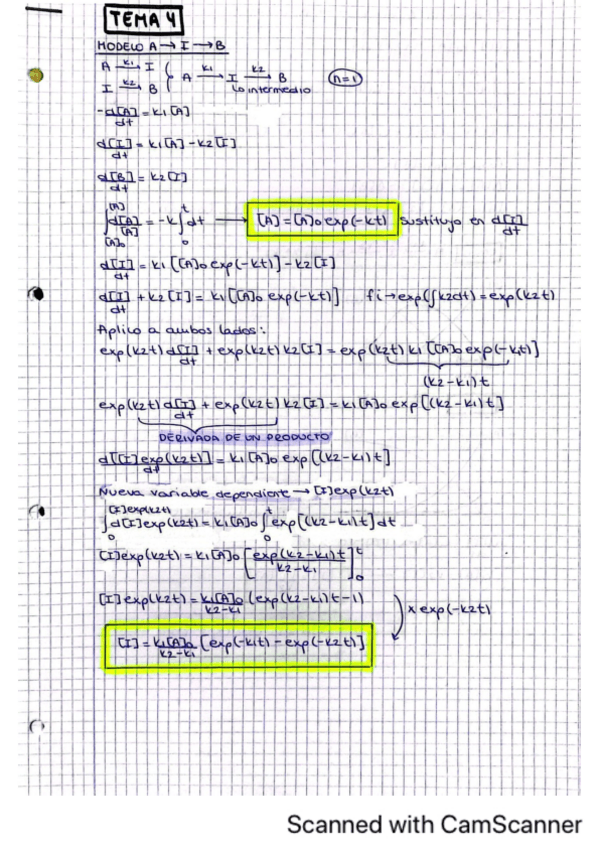 TEMA 4
MODELO A → I → B
A —k1→ I
I —k2→ B } A —k1→ I —k2→ B n=1
↳ intermedio
-d[A]/dt = k1[A]
d[I]/dt = k1[A] - k2[I]
d[B]/dt = k2[I]
∫[A]0^[A] d[A]/[A] = -k∫0^t dt → [A] = [A]0 exp(-kt) Sustituyo en d[I]/dt
d[I]/dt = k1[[A]0 exp(-kt)] - k2[I]
d[I]/dt + k2[I] = k1[[A]0 exp(-kt)] fi → exp(∫k2dt) = exp(k2t)
Aplico a ambos lados:
exp(k2t) d[I]/dt + exp(k2t) k2[I] = exp(k2t) k1[[A]0 exp(-k1t)]
(k2-k1)t
exp(k2t) d[I]/dt + exp(k2t) k2[I] = k1[A]0 exp[(k2-k1)t]
DERIVADA DE UN PRODUCTO
d[[I]exp(k2t)]/dt = k1[A]0 exp[(k2-k1)t]
Nueva variable dependiente → [I]exp(k2t)
∫0^[I]exp(k2t) d[I]exp(k2t) = k1[A]0 ∫0^t exp[(k2-k1)t]dt
[I]exp(k2t) = k1[A]0 [exp(k2-k1)t/k2-k1]0^t
[I]exp(k2t) = k1[A]0/k2-k1 (exp(k2-k1)t-1)
x exp(-k2t)
[I] = k1[A]0/k2-k1 [exp(-k1t) - exp(-k2t)]
Scanned with CamScanner